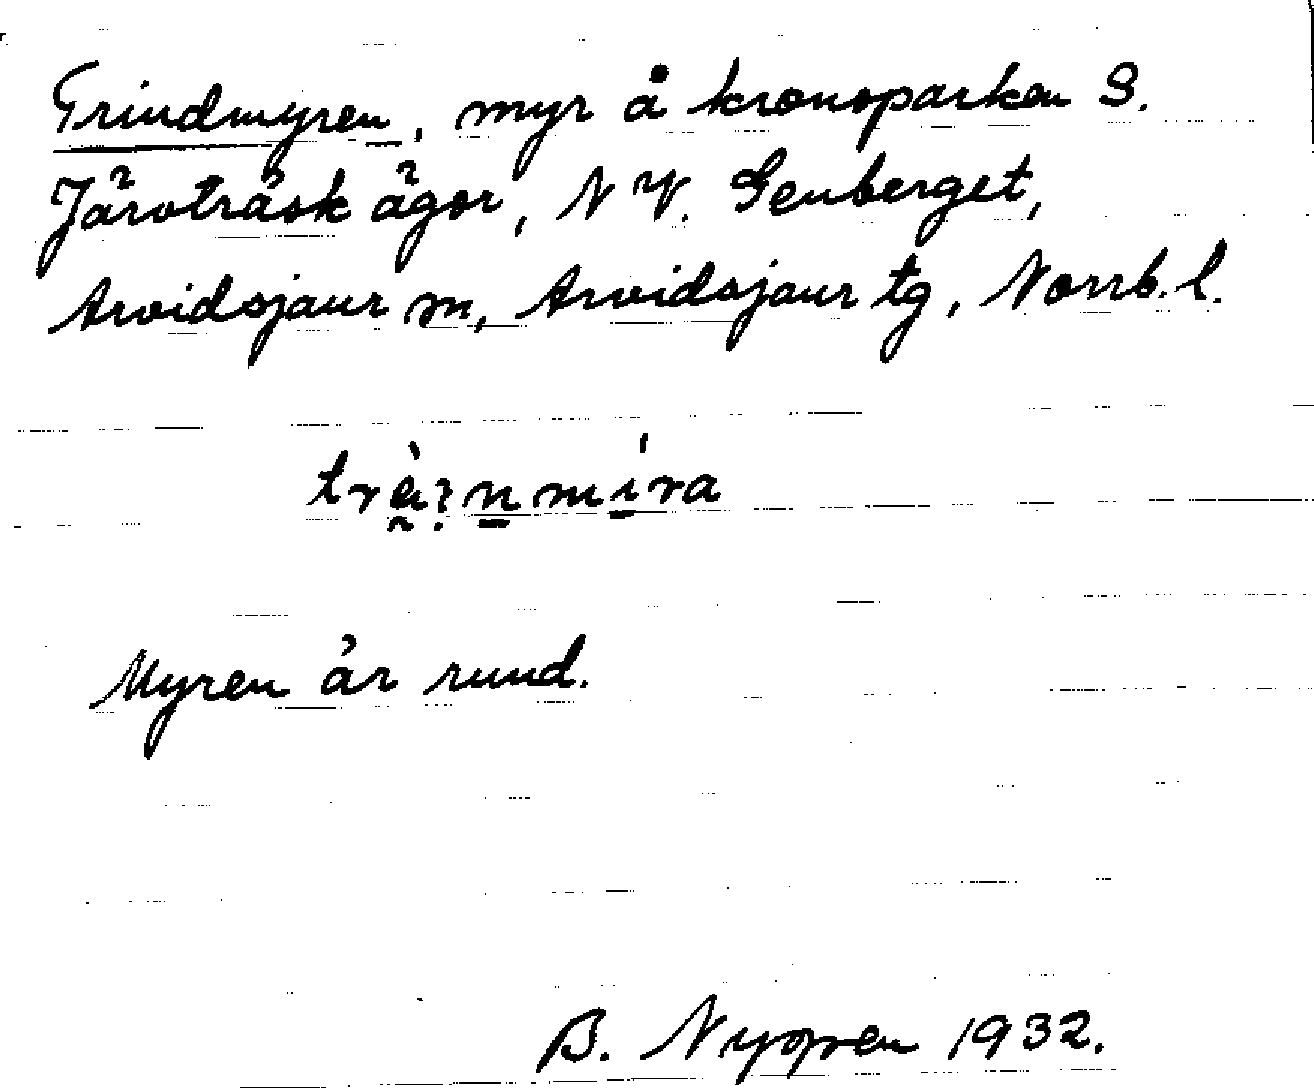 Trindmyren, myr å kronoparken S.
Järvträsk ägor, N V. Genberget,
Arvidsjaur sn, Arvidsjaur tg, Norrb. l.
Myren är rund.
B. Nygren 1932.